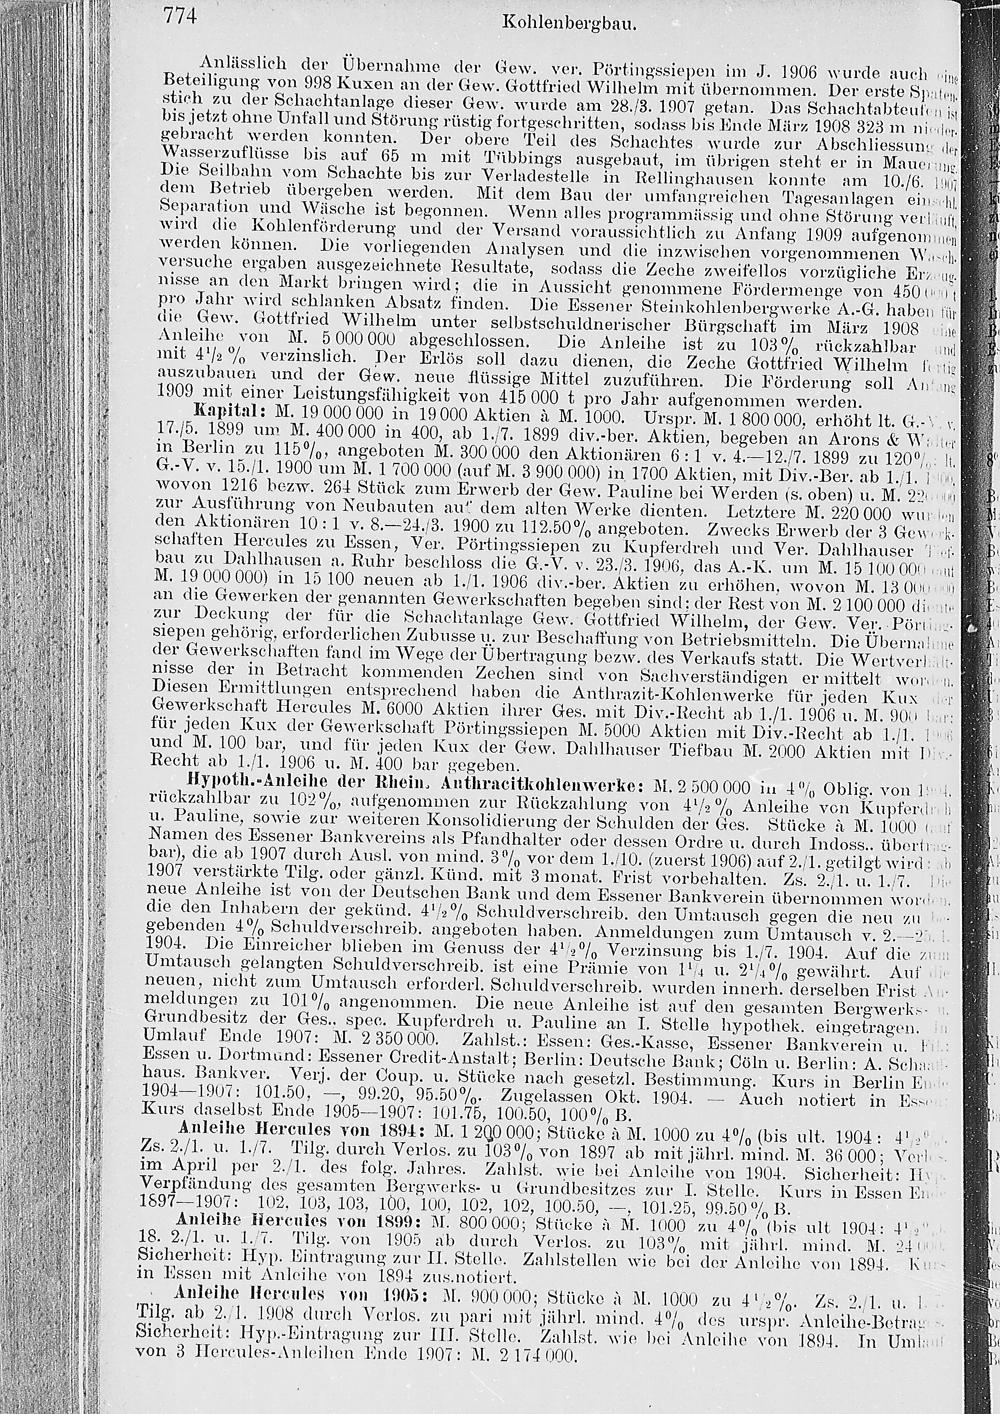 774
Kohlenbergbau.
Anlässlich der Übernahme der Gew. ver. Pörtingssiepen im J. 1906 wurde auch eine
Beteiligung von 998 Kuxen an der Gew. Gottfried Wilhelm mit übernommen. Der erste Spaten-
stich zu der Schachtanlage dieser Gew. wurde am 28./3. 1907 getan. Das Schachtabteufen ist
bis jetzt ohne Unfall und Störung rüstig fortgeschritten, sodass bis Ende März 1908 323 m nieder-
gebracht werden konnten. Der obere Teil des Schachtes wurde zur Abschliessung der
Wasserzuflüsse bis auf 65 m mit Tübbings ausgebaut, im übrigen steht er in Mauerung.
Die Seilbahn vom Schachte bis zur Verladestelle in Rellinghausen konnte am 10./6. 1907
dem Betrieb übergeben werden. Mit dem Bau der umfangreichen Tagesanlagen einschl.
Separation und Wäsche ist begonnen. Wenn alles programmässig und ohne Störung verläuft,
wird die Kohlenförderung und der Versand voraussichtlich zu Anfang 1909 aufgenommen
werden können. Die vorliegenden Analysen und die inzwischen vorgenommenen Wasch-
versuche ergaben ausgezeichnete Resultate, sodass die Zeche zweifellos vorzügliche Erzeug-
nisse an den Markt bringen wird; die in Aussicht genommene Fördermenge von 450 000 t
pro Jahr wird schlanken Absatz finden. Die Essener Steinkohlenbergwerke A.-G. haben für
die Gew. Gottfried Wilhelm unter selbstschuldnerischer Bürgschaft im März 1908 eine
Anleihe von M. 5 000 000 abgeschlossen. Die Anleihe ist zu 103% rückzahlbar und
mit 4 1/2 % verzinslich. Der Erlös soll dazu dienen, die Zeche Gottfried Wilhelm fertig
auszubauen und der Gew. neue flüssige Mittel zuzuführen. Die Förderung soll Anfang
1909 mit einer Leistungsfähigkeit von 415 000 t pro Jahr aufgenommen werden.
Kapital: M. 19 000 000 in 19 000 Aktien à M. 1000. Urspr. M. 1 800 000, erhöht lt. G.-V. v.
17./5. 1899 um M. 400 000 in 400, ab 1./7. 1899 div.-ber. Aktien, begeben an Arons & Walter
in Berlin zu 115%, angeboten M. 300 000 den Aktionären 6 : 1 v. 4.—12./7. 1899 zu 120%, lt.
G.-V. v. 15./1. 1900 um M. 1 700 000 (auf M. 3 900 000) in 1700 Aktien, mit Div.-Ber. ab 1./1. 1900,
wovon 1216 bezw. 264 Stück zum Erwerb der Gew. Pauline bei Werden (s. oben) u. M. 220 000
zur Ausführung von Neubauten auf dem alten Werke dienten. Letztere M. 220 000 wurden
den Aktionären 10 : 1 v. 8.—24./3. 1900 zu 112.50% angeboten. Zwecks Erwerb der 3 Gewerk-
schaften Hercules zu Essen, Ver. Pörtingssiepen zu Kupferdreh und Ver. Dahlhauser Tief-
bau zu Dahlhausen a. Ruhr beschloss die G.-V. v. 23./3. 1906, das A.-K. um M. 15 100 000 (auf
M. 19 000 000) in 15 100 neuen ab 1./1. 1906 div.-ber. Aktien zu erhöhen, wovon M. 13 000 000
an die Gewerken der genannten Gewerkschaften begeben sind; der Rest von M. 2 100 000 diente
zur Deckung der für die Schachtanlage Gew. Gottfried Wilhelm, der Gew. Ver. Pörtings-
siepen gehörig, erforderlichen Zubusse u. zur Beschaffung von Betriebsmitteln. Die Übernahme
der Gewerkschaften fand im Wege der Übertragung bezw. des Verkaufs statt. Die Wertverhält-
nisse der in Betracht kommenden Zechen sind von Sachverständigen ermittelt worden.
Diesen Ermittlungen entsprechend haben die Anthrazit-Kohlenwerke für jeden Kux der
Gewerkschaft Hercules M. 6000 Aktien ihrer Ges. mit Div.-Recht ab 1./1. 1906 u. M. 900 bar;
für jeden Kux der Gewerkschaft Pörtingssiepen M. 5000 Aktien mit Div.-Recht ab 1./1. 1906
und M. 100 bar, und für jeden Kux der Gew. Dahlhauser Tiefbau M. 2000 Aktien mit Div.-
Recht ab 1./1. 1906 u. M. 400 bar gegeben.
Hypoth.-Anleihe der Rhein. Anthracitkohlenwerke: M. 2 500 000 in 4% Oblig. von 1904,
rückzahlbar zu 102%, aufgenommen zur Rückzahlung von 4 1/2 % Anleihe von Kupferdreh
u. Pauline, sowie zur weiteren Konsolidierung der Schulden der Ges. Stücke à M. 1000 (auf
Namen des Essener Bankvereins als Pfandhalter oder dessen Ordre u. durch Indoss.. übertrag-
bar), die ab 1907 durch Ausl. von mind. 3% vor dem 1./10. (zuerst 1906) auf 2./1. getilgt wird: ab
1907 verstärkte Tilg. oder gänzl. Künd. mit 3 monat. Frist vorbehalten. Zs. 2./1. u. 1./7. Die
neue Anleihe ist von der Deutschen Bank und dem Essener Bankverein übernommen worden,
die den Inhabern der gekünd. 4 1/2% Schuldverschreib. den Umtausch gegen die neu zu be-
gebenden 4% Schuldverschreib. angeboten haben. Anmeldungen zum Umtausch v. 2.—25./1.
1904. Die Einreicher blieben im Genuss der 4 1/2% Verzinsung bis 1./7. 1904. Auf die zum
Umtausch gelangten Schuldverschreib. ist eine Prämie von 1 1/4 u. 2 1/4% gewährt. Auf die
neuen, nicht zum Umtausch erforderl. Schuldverschreib. wurden innerh. derselben Frist An-
meldungen zu 101% angenommen. Die neue Anleihe ist auf den gesamten Bergwerks- u.
Grundbesitz der Ges., spec. Kupferdreh u. Pauline an I. Stelle hypothek. eingetragen. In
Umlauf Ende 1907: M. 2 350 000. Zahlst.: Essen: Ges.-Kasse, Essener Bankverein u. Fil.:
Essen u. Dortmund: Essener Credit-Anstalt; Berlin: Deutsche Bank; Cöln u. Berlin: A. Schaaff-
haus. Bankver. Verj. der Coup. u. Stücke nach gesetzl. Bestimmung. Kurs in Berlin Ende
1904—1907: 101.50, —, 99.20, 95.50%. Zugelassen Okt. 1904. — Auch notiert in Essen.
Kurs daselbst Ende 1905—1907: 101.75, 100.50, 100% B.
Anleihe Hercules von 1894: M. 1 200 000; Stücke à M. 1000 zu 4% (bis ult. 1904: 4 1/2%).
Zs. 2./1. u. 1./7. Tilg. durch Verlos. zu 103% von 1897 ab mit jährl. mind. M. 36 000; Verlos.
im April per 2./1. des folg. Jahres. Zahlst. wie bei Anleihe von 1904. Sicherheit: Hyp.
Verpfändung des gesamten Bergwerks- u Grundbesitzes zur I. Stelle. Kurs in Essen Ende
1897—1907: 102, 103, 103, 100, 100, 102, 102, 100.50, —, 101.25, 99.50% B.
Anleihe Hercules von 1899: M. 800 000; Stücke à M. 1000 zu 4% (bis ult 1904: 4 1/2%).
18. 2./1. u. 1./7. Tilg. von 1905 ab durch Verlos. zu 103% mit jährl. mind. M. 24 000.
Sicherheit: Hyp. Eintragung zur II. Stelle. Zahlstellen wie bei der Anleihe von 1894. Kurs
in Essen mit Anleihe von 1894 zus.notiert.
Anleihe Hercules von 1905: M. 900 000; Stücke à M. 1000 zu 4 1/2%. Zs. 2./1. u. 1.
Tilg. ab 2./1. 1908 durch Verlos. zu pari mit jährl. mind. 4% des urspr. Anleihe-Betrages.
Sicherheit: Hyp.-Eintragung zur III. Stelle. Zahlst. wie bei Anleihe von 1894. In Umlauf
von 3 Hercules-Anleihen Ende 1907: M. 2 174 000.